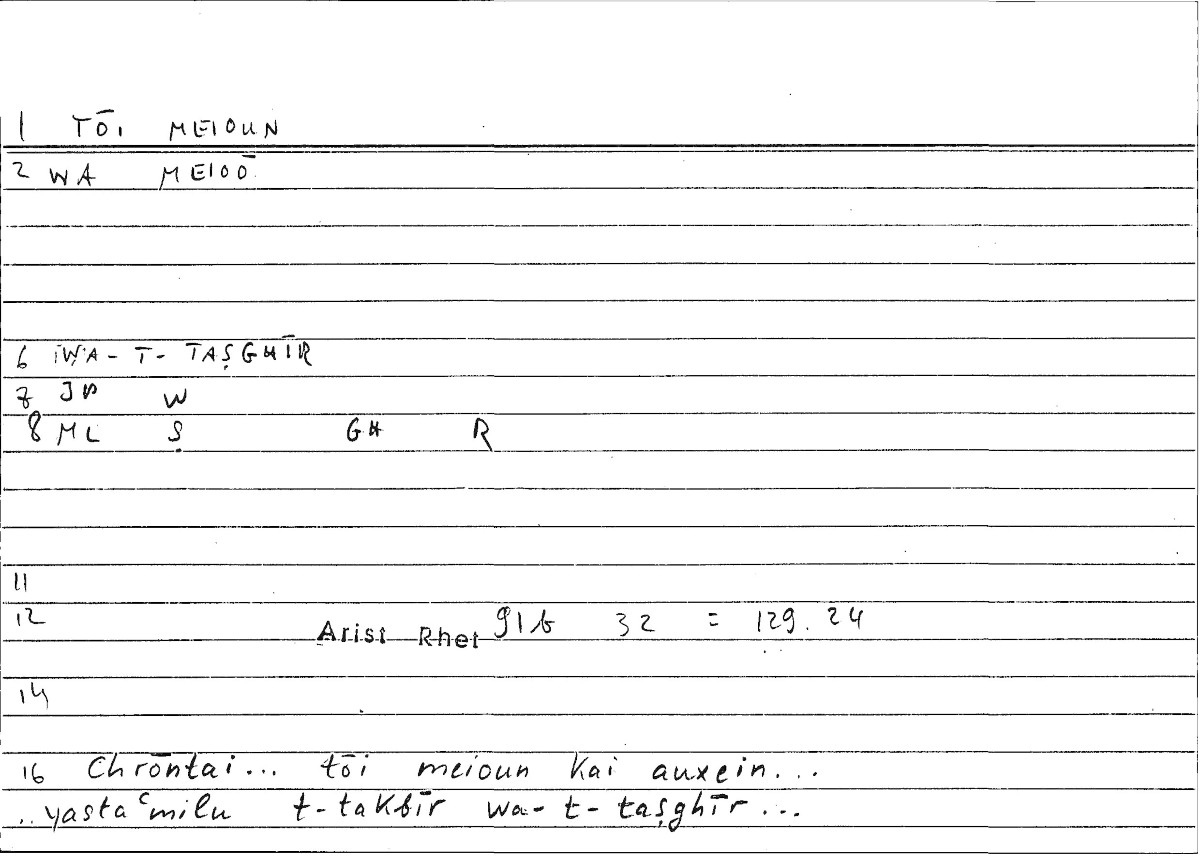 1 TŌI MEIOUN
2 WA MEIOŌ
6 WA-T-TAṢGHĪR
7 W
8 ML Ṣ GH R
11
12 Arist Rhet 91b 32 = 129.24
14
16 Chrōntai... tōi meioun kai auxein...
..yastaʿmilu t-takbīr wa-t-taṣghīr...